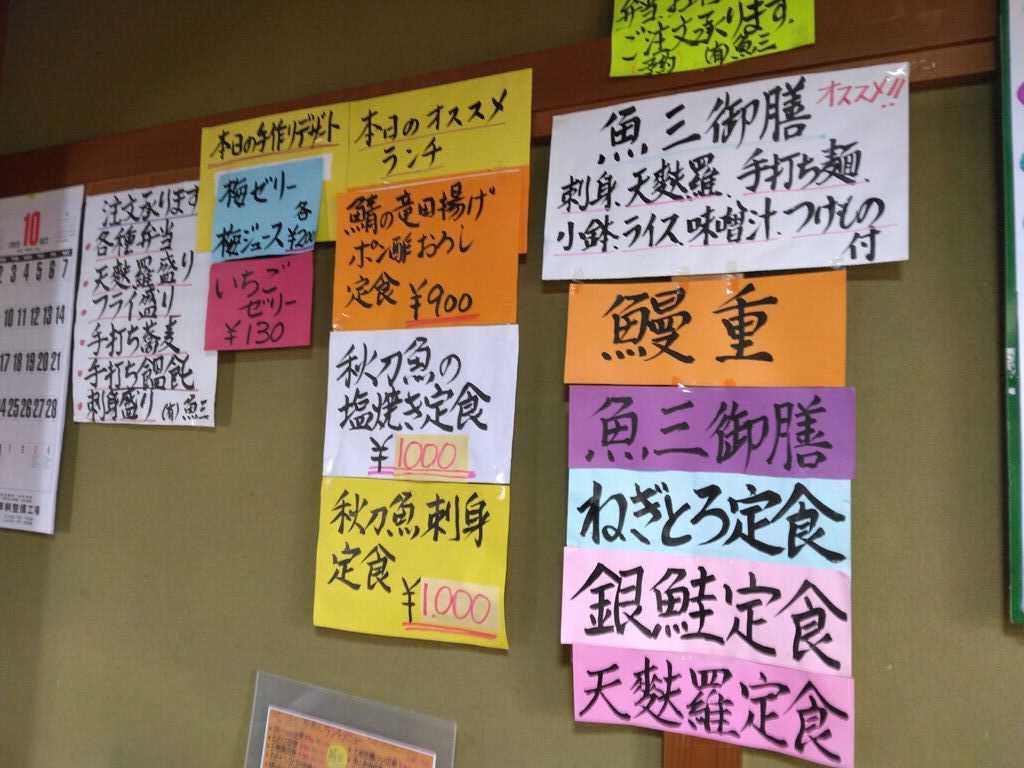 弁当お
ご注文承ります
予約 (有)魚三
10
3 4 5 6 7
10 11 12 13 14
17 18 19 20 21
24 25 26 27 28
整備工場
注文承ります
・各種弁当
・天麩羅盛り
・フライ盛り
・手打ち蕎麦
・手打ち饂飩
・刺身盛り (有)魚三
本日の手作りデザート
梅ゼリー
梅ジュース 各¥200
いちご
ゼリー
¥130
本日のオススメ
ランチ
鯖の竜田揚げ
ポン酢おろし
定食 ¥900
秋刀魚の
塩焼き定食
¥1000
秋刀魚刺身
定食
¥1.000
魚三御膳 オススメ!!
刺身、天麩羅、手打ち麺
小鉢、ライス、味噌汁、つけもの
付
鰻重
魚三御膳
ねぎとろ定食
銀鮭定食
天麩羅定食